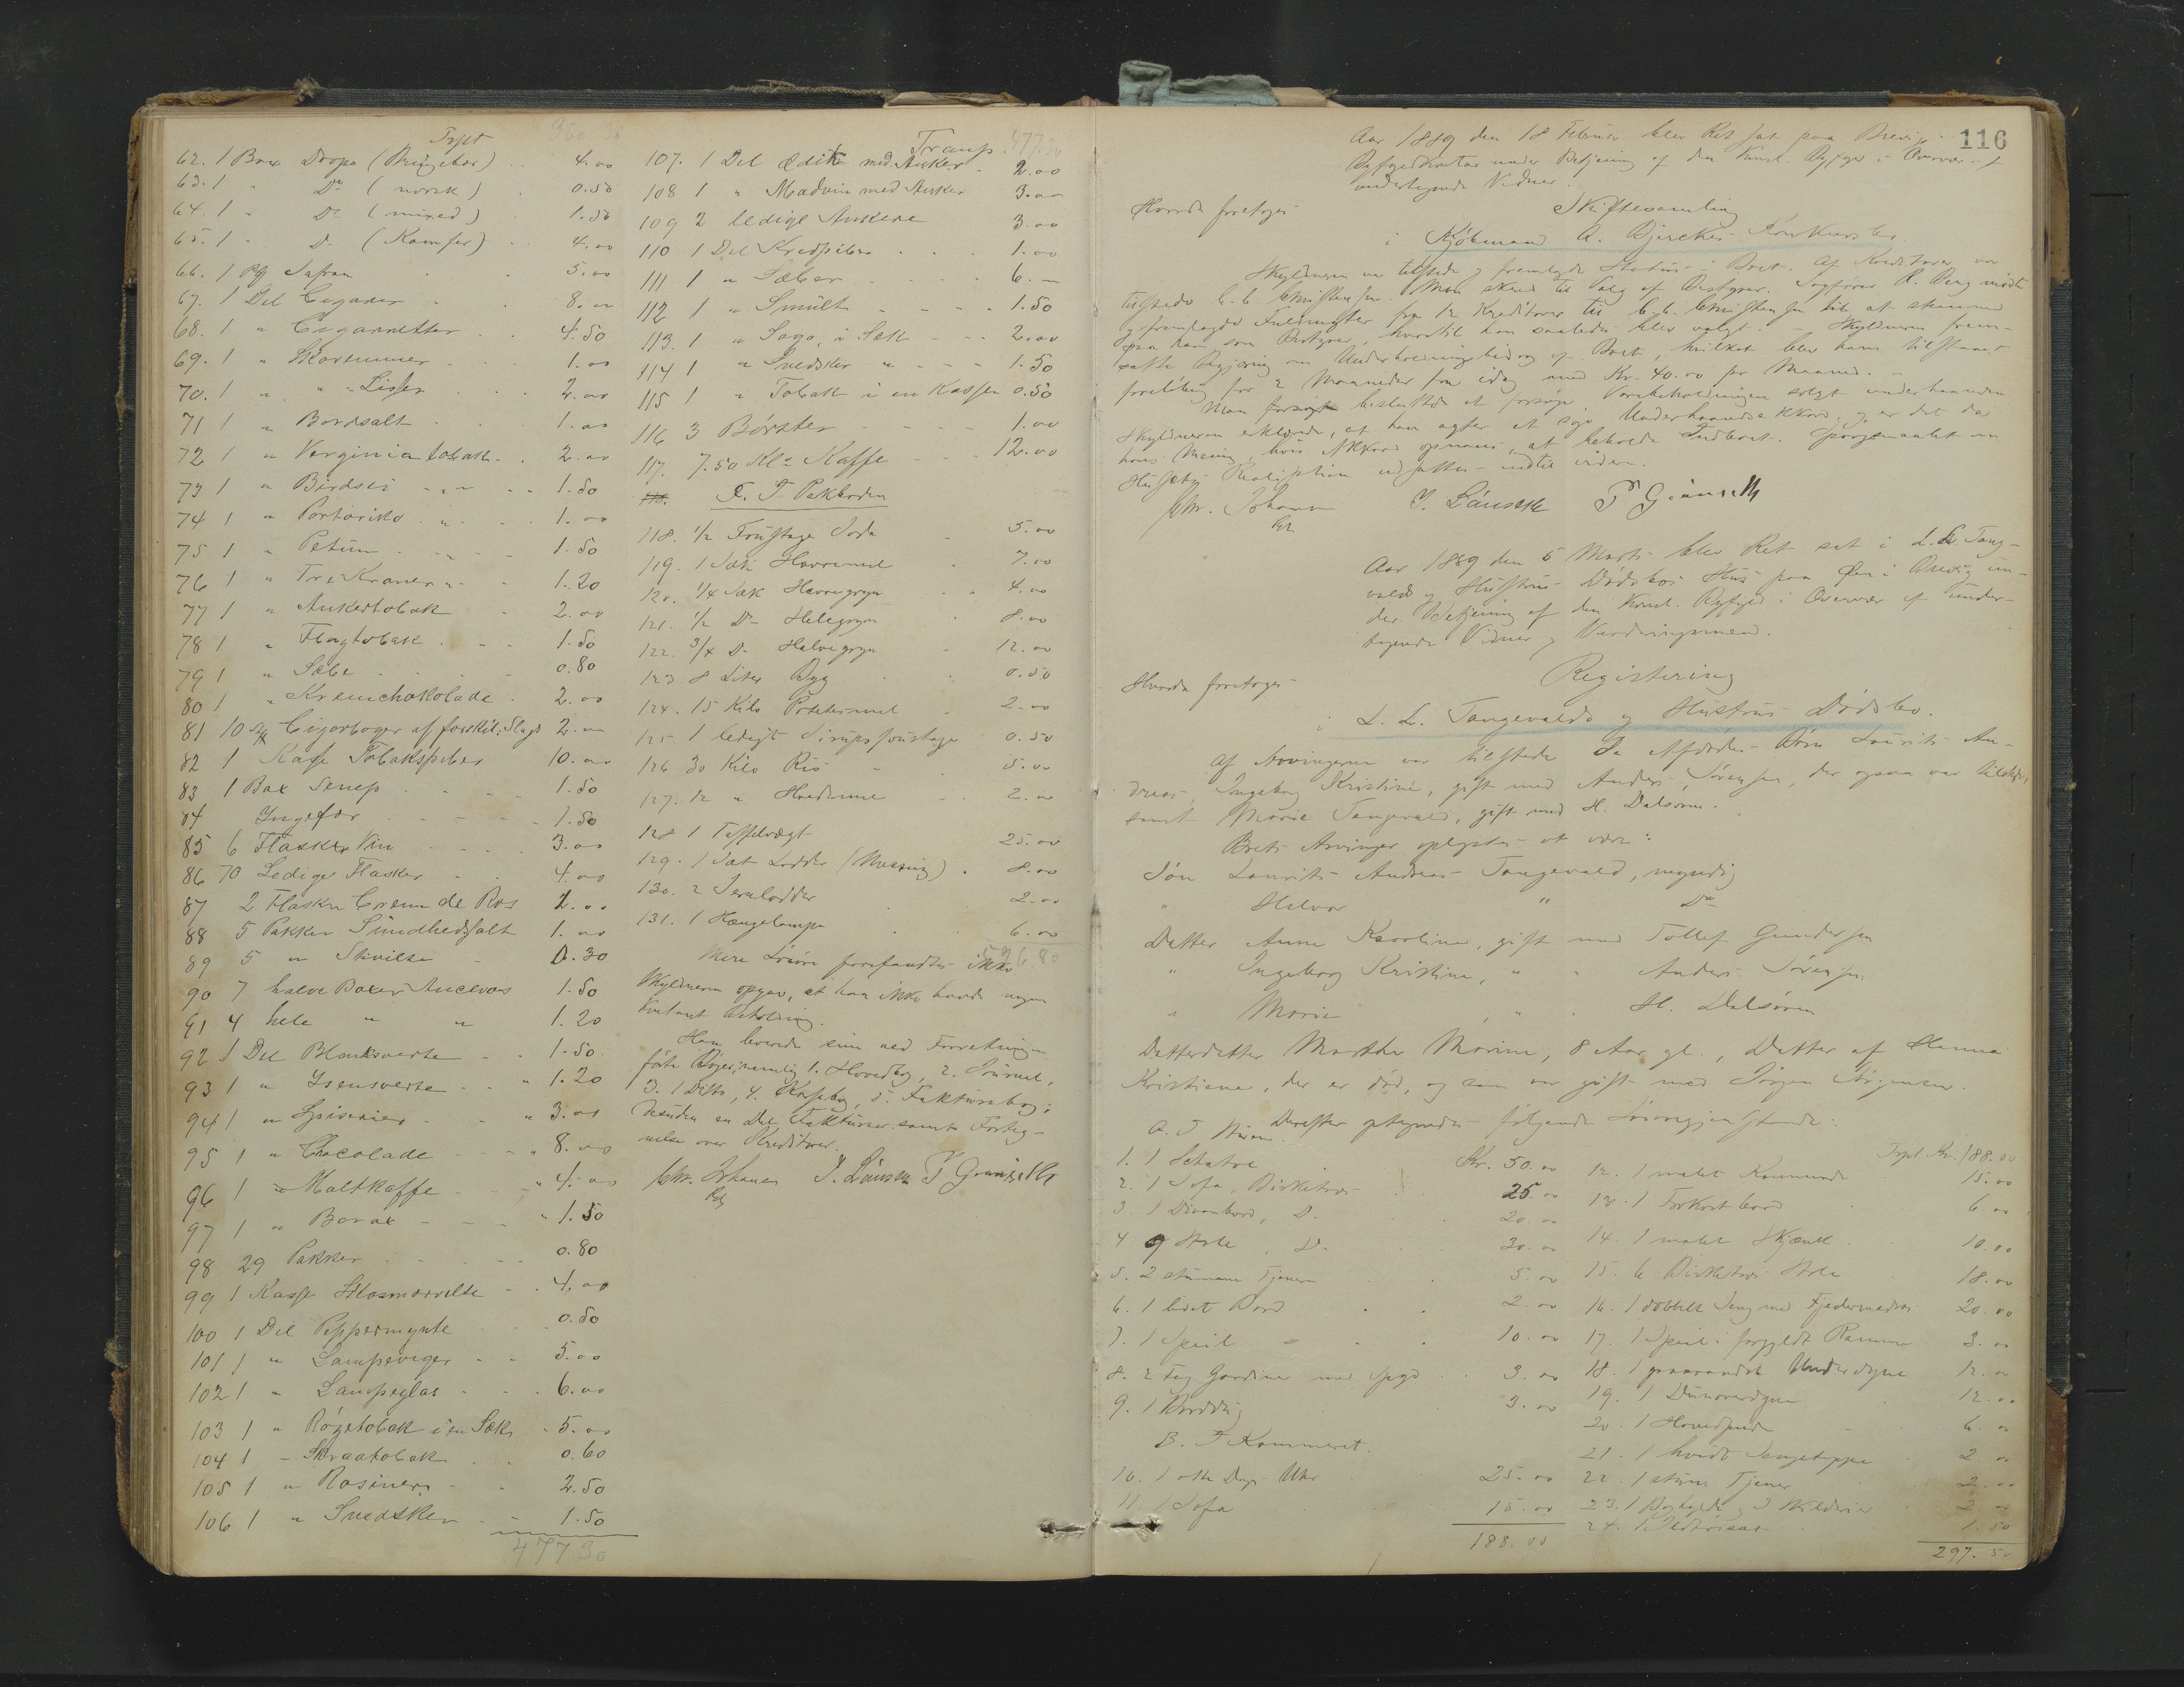 Trpt 360
62. 1 Box Drops (Bringebær) 4.00
63. 1 " Do (norsk) 0.50
64. 1 " Do (mixed) 1.50
65. 1 " Do (Kamfer) 4.00
66. 1 Safran 5.00
67. 1 Del Cigarer 8.00
68. 1 " Cigarretter 4.50
69. 1 " Skoremmer 1.00
70. 1 " " Lisser 2.00
71 1 " Bordsalt 1.00
72 1 " Verginiatobak 2.00
73 1 " Birdsei " 1.50
74 1 " Portoriko " 1.00
75 1 " Petum " 1.50
76 1 " Tre Kroner " 1.20
77 1 " Ankertobak 2.00
78 1 " Flagtobak 1.50
79 1 " Sæbe 0.80
80 1 " Kremchokolade 2.00
81 10 Stk Cigarboger af forskjel: Slags 2.00
82 1 Kasse Tobakspiber 10.00
83 1 Box Senep 1.50
84 Ingefær 1.50
85 6 Flasker Vin 3.00
86 70 Ledige Flasker 4.00
87 2 Flasker Crem de Ros 2.00
88 5 Pakker Sundhedssalt 1.00
89 5 " Skrilte 0.30
90 7 halve Boxer Ancevos 1.50
91 4 hele " " 1.20
92 1 Del Blanksverte 1.50
93 1 " Isensverte " 1.20
94 1 " Spiserier " 3.00
95 1 " Chocolade " 8.00
96 1 " Maltkaffe " 4.00
97 1 " Borax " 1.50
98 29 Pakker 0.80
99 1 Kasse 4.00
100 1 Del Peppermynte 0.50
101 1 " Lampeveger 5.00
102 1 " Lampeglas 6.00
103 1 " Røgetobak i en Sæk 5.00
104 1 " Skraatobak 0.60
105 1 " Rosiner 2.50
106 1 " Svedsker 1.50
477 30
Transp. 477.30
107. 1 Del Edik med Anker 2.00
108 1 " Madvin med Anker 3.00
109 2 ledige Ankere 3.00
110 1 Del Kridpiber 1.00
111 1 " Sæber 6.00
112 1 " Smult 1.50
113. 1 " Sago, i Sæk 2.00
114 1 " Svedsker " 1.50
115 1 " Tobak i en Kasse 0.50
116 3 Børster 1.00
117. 7.50 Klo Kaffe 12.00
118. I Pakboden
118. 1/2 Fustage Soda 5.00
119. 1 Sæk Havremel 7.00
120. 1/4 Sæk Havregryn 4.00
121. 1/2 Do Helegryn 8.00
122. 3/4 Do Halvegryn 12.00
123. 8 Liter Byg 0.50
124. 15 Kilo Potetesmel 2.00
125. 1 ledigt Sirupsfustage 0.50
126 30 Kilo Ris 5.00
127. 12 " Hvedemel 2.00
128 1 Taffelvægt 25.00
129. 1 Sæt Lodder (Messing) 8.00
130. 2 Jernlodder 2.00
131. 1 Hængelampe 6.00
596 80
Mere Løsøre forefandtes ikke
Skyldneren opgav, at han ikke havde nogen
Kontant Beholdning.
Han leverede sine ved Forretningen
førte Bøger, nemlig 1. Hovedbog, 2. Journal,
3. 1 Ditto, 4. Kassebog, 5. Fakturabog;
desuden en Del Fakturer samt Forteg-
nelse over Kreditorer.
Chr. Johansen J. Lånsem P Grønseth
116
Aar 1889 den 18 Februar blev Ret sat paa Brevig
Byfogedkontor under Betjening af den Konst. Byfoged i Overvær af
undertegnede Vidner.
Hvorda foretoges
Skiftesamling
i Kjøbmand A. Bjerckes Konkursbo
Skyldneren var tilstede og fremlagde Status i Boet. Af Kreditorer var
tilstede C. C. Christensen. Man skred til Valg af Bestyrer. Sagfører R. Berg mødte
og fremlagde Fuldmagter fra 12 Kreditorer til C. C. Christensen til at stemme
paa ham som Bestyrer, hvortil han saaledes blev valgt. - Skyldneren frem-
satte Begjæring om Underholdningsbidrag af Boet, hvilket blev ham tilstaaet
foreløbig for 2 Maaneder fra idag med Kr. 40.00 pr Maaned. -
Man besluttede at forsøge Varebeholdningen solgt underhaanden
Skyldneren erklærede, at han agter at søge Underhaandsakkord, og er det da
hans Mening, hvis Akkord opnaaes, at beholde Indboet. Spørgsmaalet om
Husets Realisation udsattes indtil videre.
Chr. Johansen J. Lånsem P Grønseth
Aar 1889 den 5 Marts blev Ret sat i L. L. Tang-
valds og Hustrus Dødsbos Hus paa Øen i Brevig un-
der Betjening af den Konst. Byfoged i Overvær af under-
tegnede Vidner og Vurderingsmænd.
Hvorda foretoges
Registering
i L. L. Tangevalds og Hustrus Dødsbo.
Af Arvingerne var tilstede de Afdødes Børn Laurits An-
dreas, Ingeborg Kristine, gift med Anders Sørensen, der ogsaa var tilstede,
samt Marie Tangevald, gift med H. Dalsøren.
Boets Arvinger oplystes at være:
Søn Laurits Andreas Tangevald, myndig
" Halvor " Do
Datter Anne Karoline, gift med Tollef Gundersen
" Ingeborg Kristine, " " Anders Sørensen
" Marie , " " H. Dalsøren
Datterdatter Marthe Marine, 8 Aar gl., Datter af Hanna
Kristiane, der er død, og som var gift med Jørgen Jørgensen.
Derefter optegnedes følgende Løsøregjenstande:
A. I Stuen
1. 1 Schatol Kr. 50.00
2. 1 Sofa, Birketræs 25.00
3. 1 Divanbord, Do 20.00
4 9 Stole, Do 30.00
5. 2 stumme Tjener 5.00
6. 1 lidet Bord 2.00
7. 1 Speil 10.00
8. 2 Fag Gardiner med 3.00
9. 1 Borddug 3.00
B. I Kammeret.
10. 1 otte Dags Uhr 25.00
11. 1 Sofa 15.00
188.00
Trpt Kr. 188.00
12. 1 malet Kommode 15.00
13. 1 Frokostbord 6.00
14. 1 malet Skjænk 10.00
15. 6 Birketræs Stole 18.00
16. 1 dobbelt Seng med Fjedermadras 20.00
17. 1 Speil i forgyldt Ramme 3.00
18. 1 graarandet Underdyne 12.00
19. 1 Dunoverdyne 12.00
20. 1 Hovedpude 6.00
21. 1 hvidt Sengetæppe 2.00
22. 1 stum Tjener 2.00
23. 1 Boghylde, 3 Billeder 2.00
24. 1 1.50
297.50